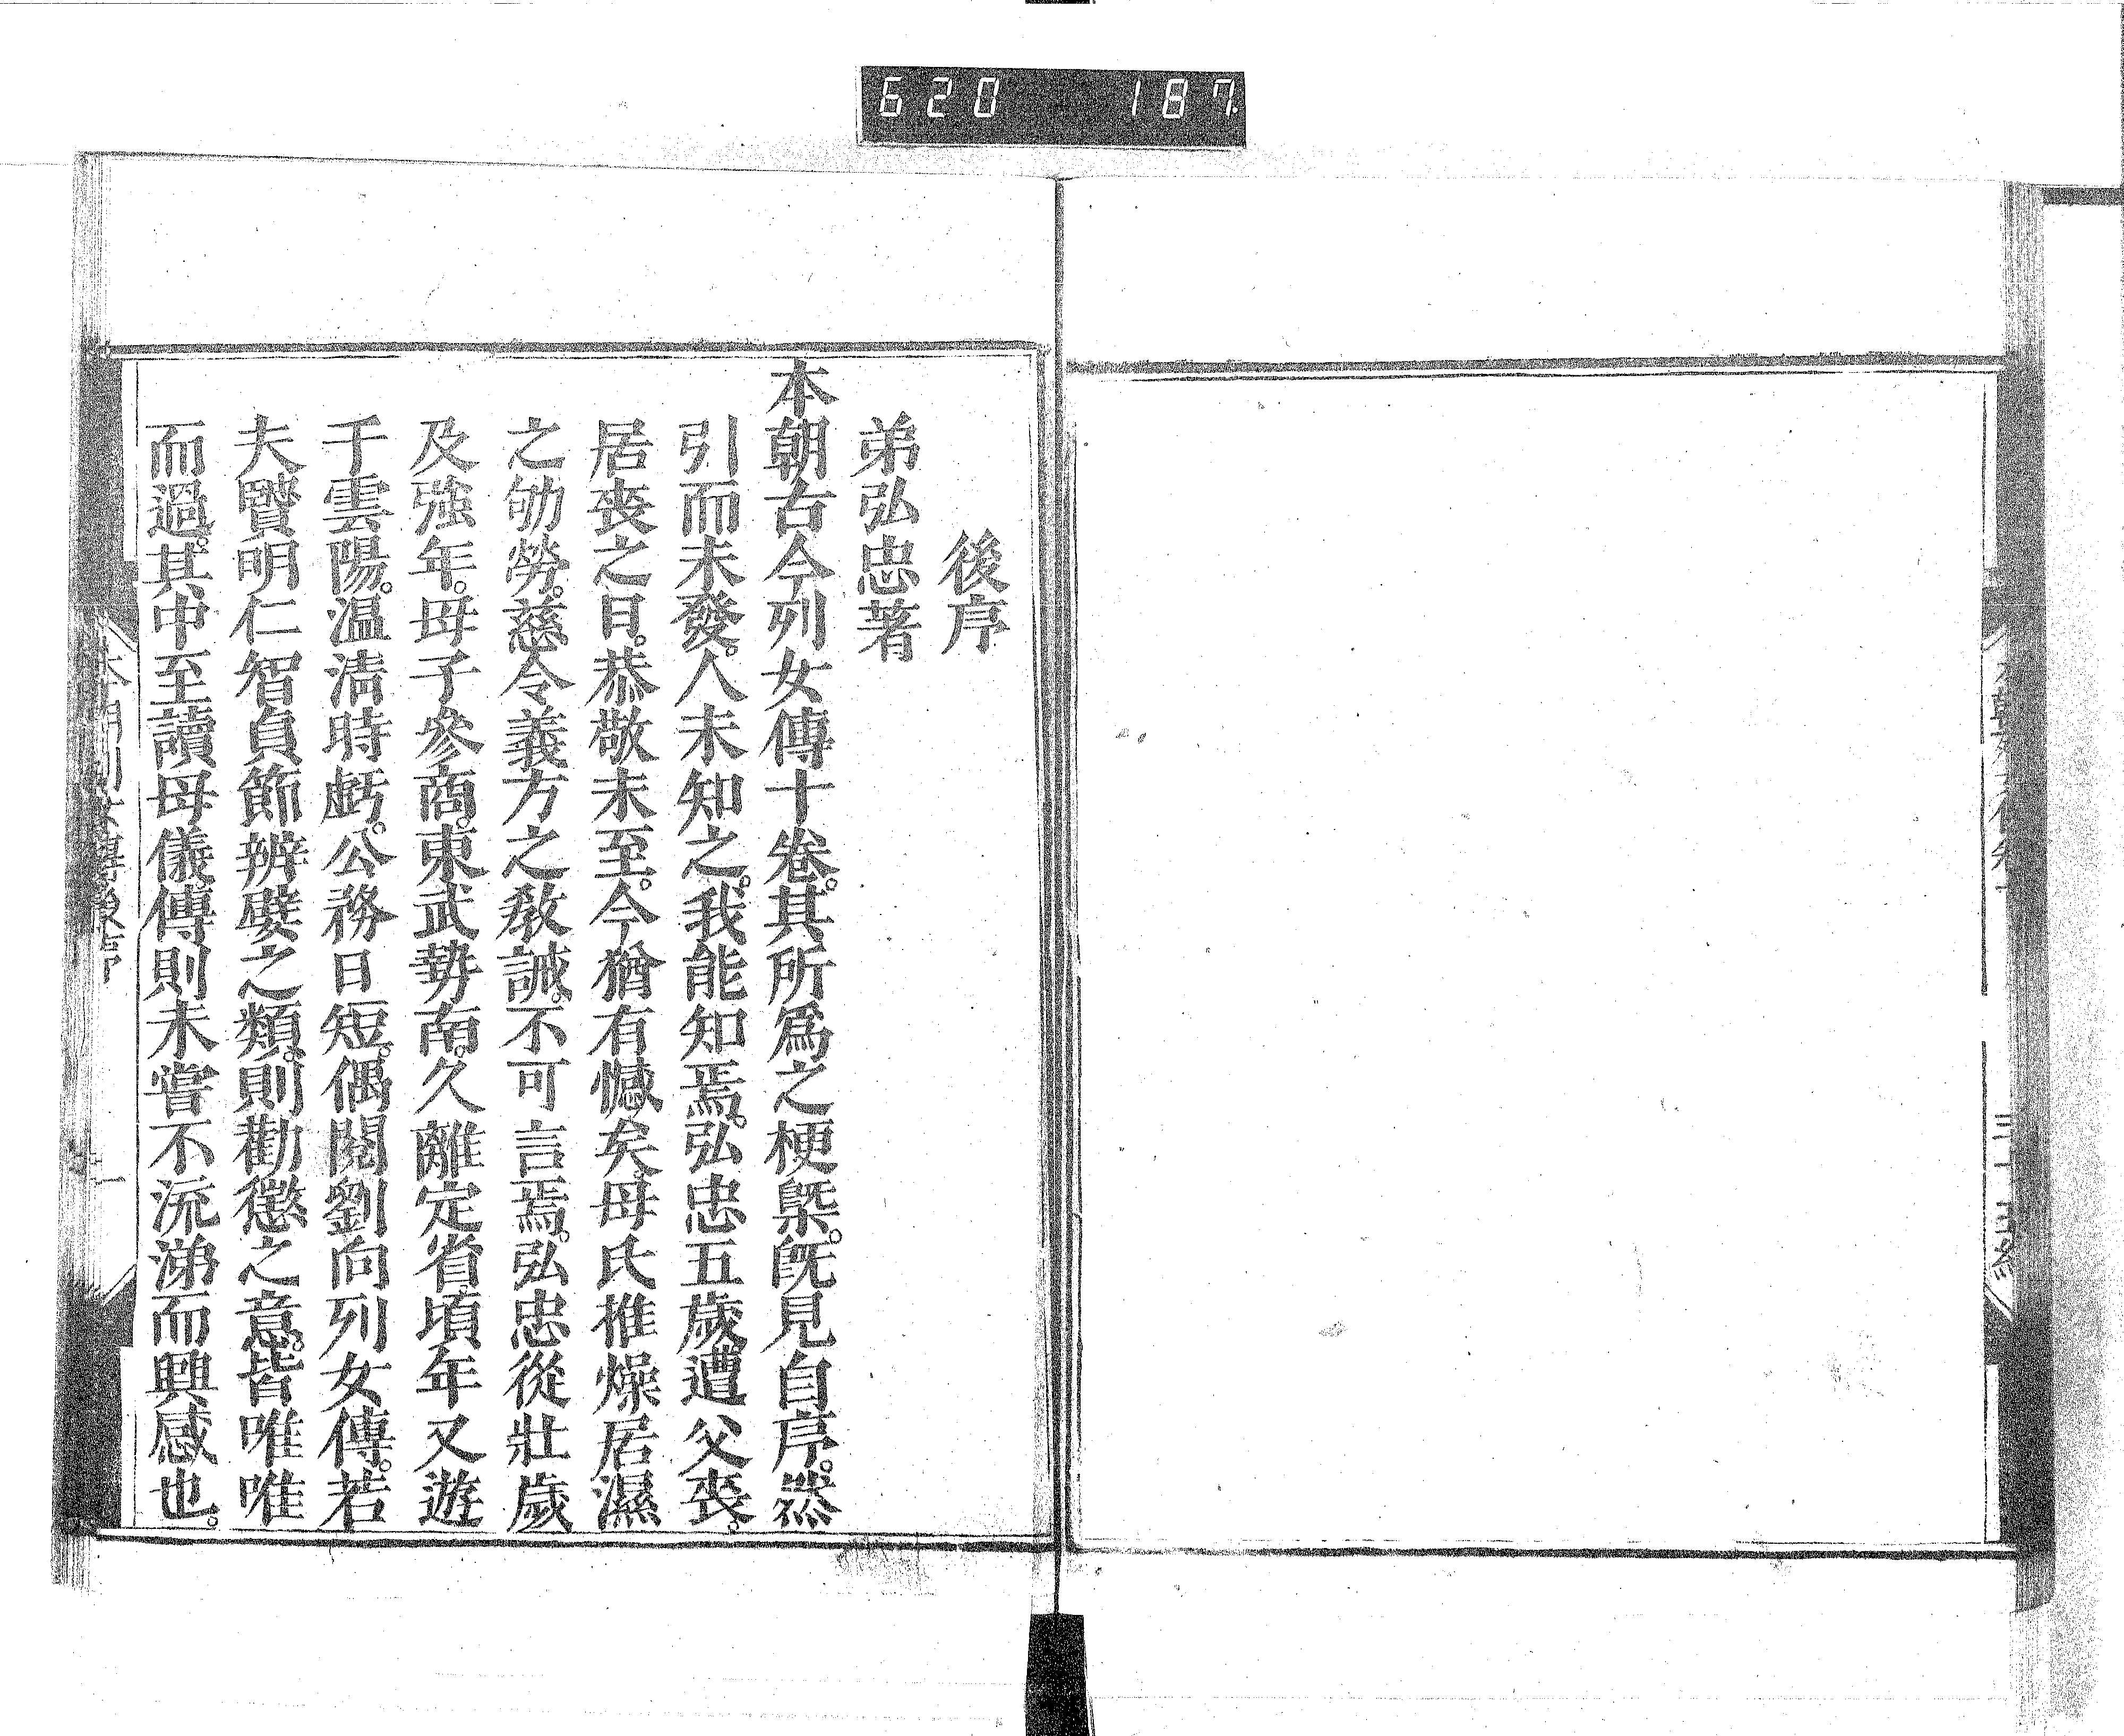 620 187
後序
弟弘忠著
本朝古今列女傳十卷。其所爲之梗槩。既見自序。然
引而未發。人未知之。我能知焉。弘忠五歲遭父喪。
居喪之日。恭敬未至。今猶有憾矣。母氏推燥居濕
之劬勞。慈令義方之敎誡。不可言焉。弘忠從壯歲
及強年。母子參商。東武勢南。久離定省。頃年又遊
于雲陽。温凊時虧。公務日短。偶閱劉向列女傳。若
夫賢明仁智貞節辨嬖之類。則勸懲之意。皆唯唯
而過。其中至讀母儀傳則未嘗不流涕而興感也。
本朝列女傳後序 一